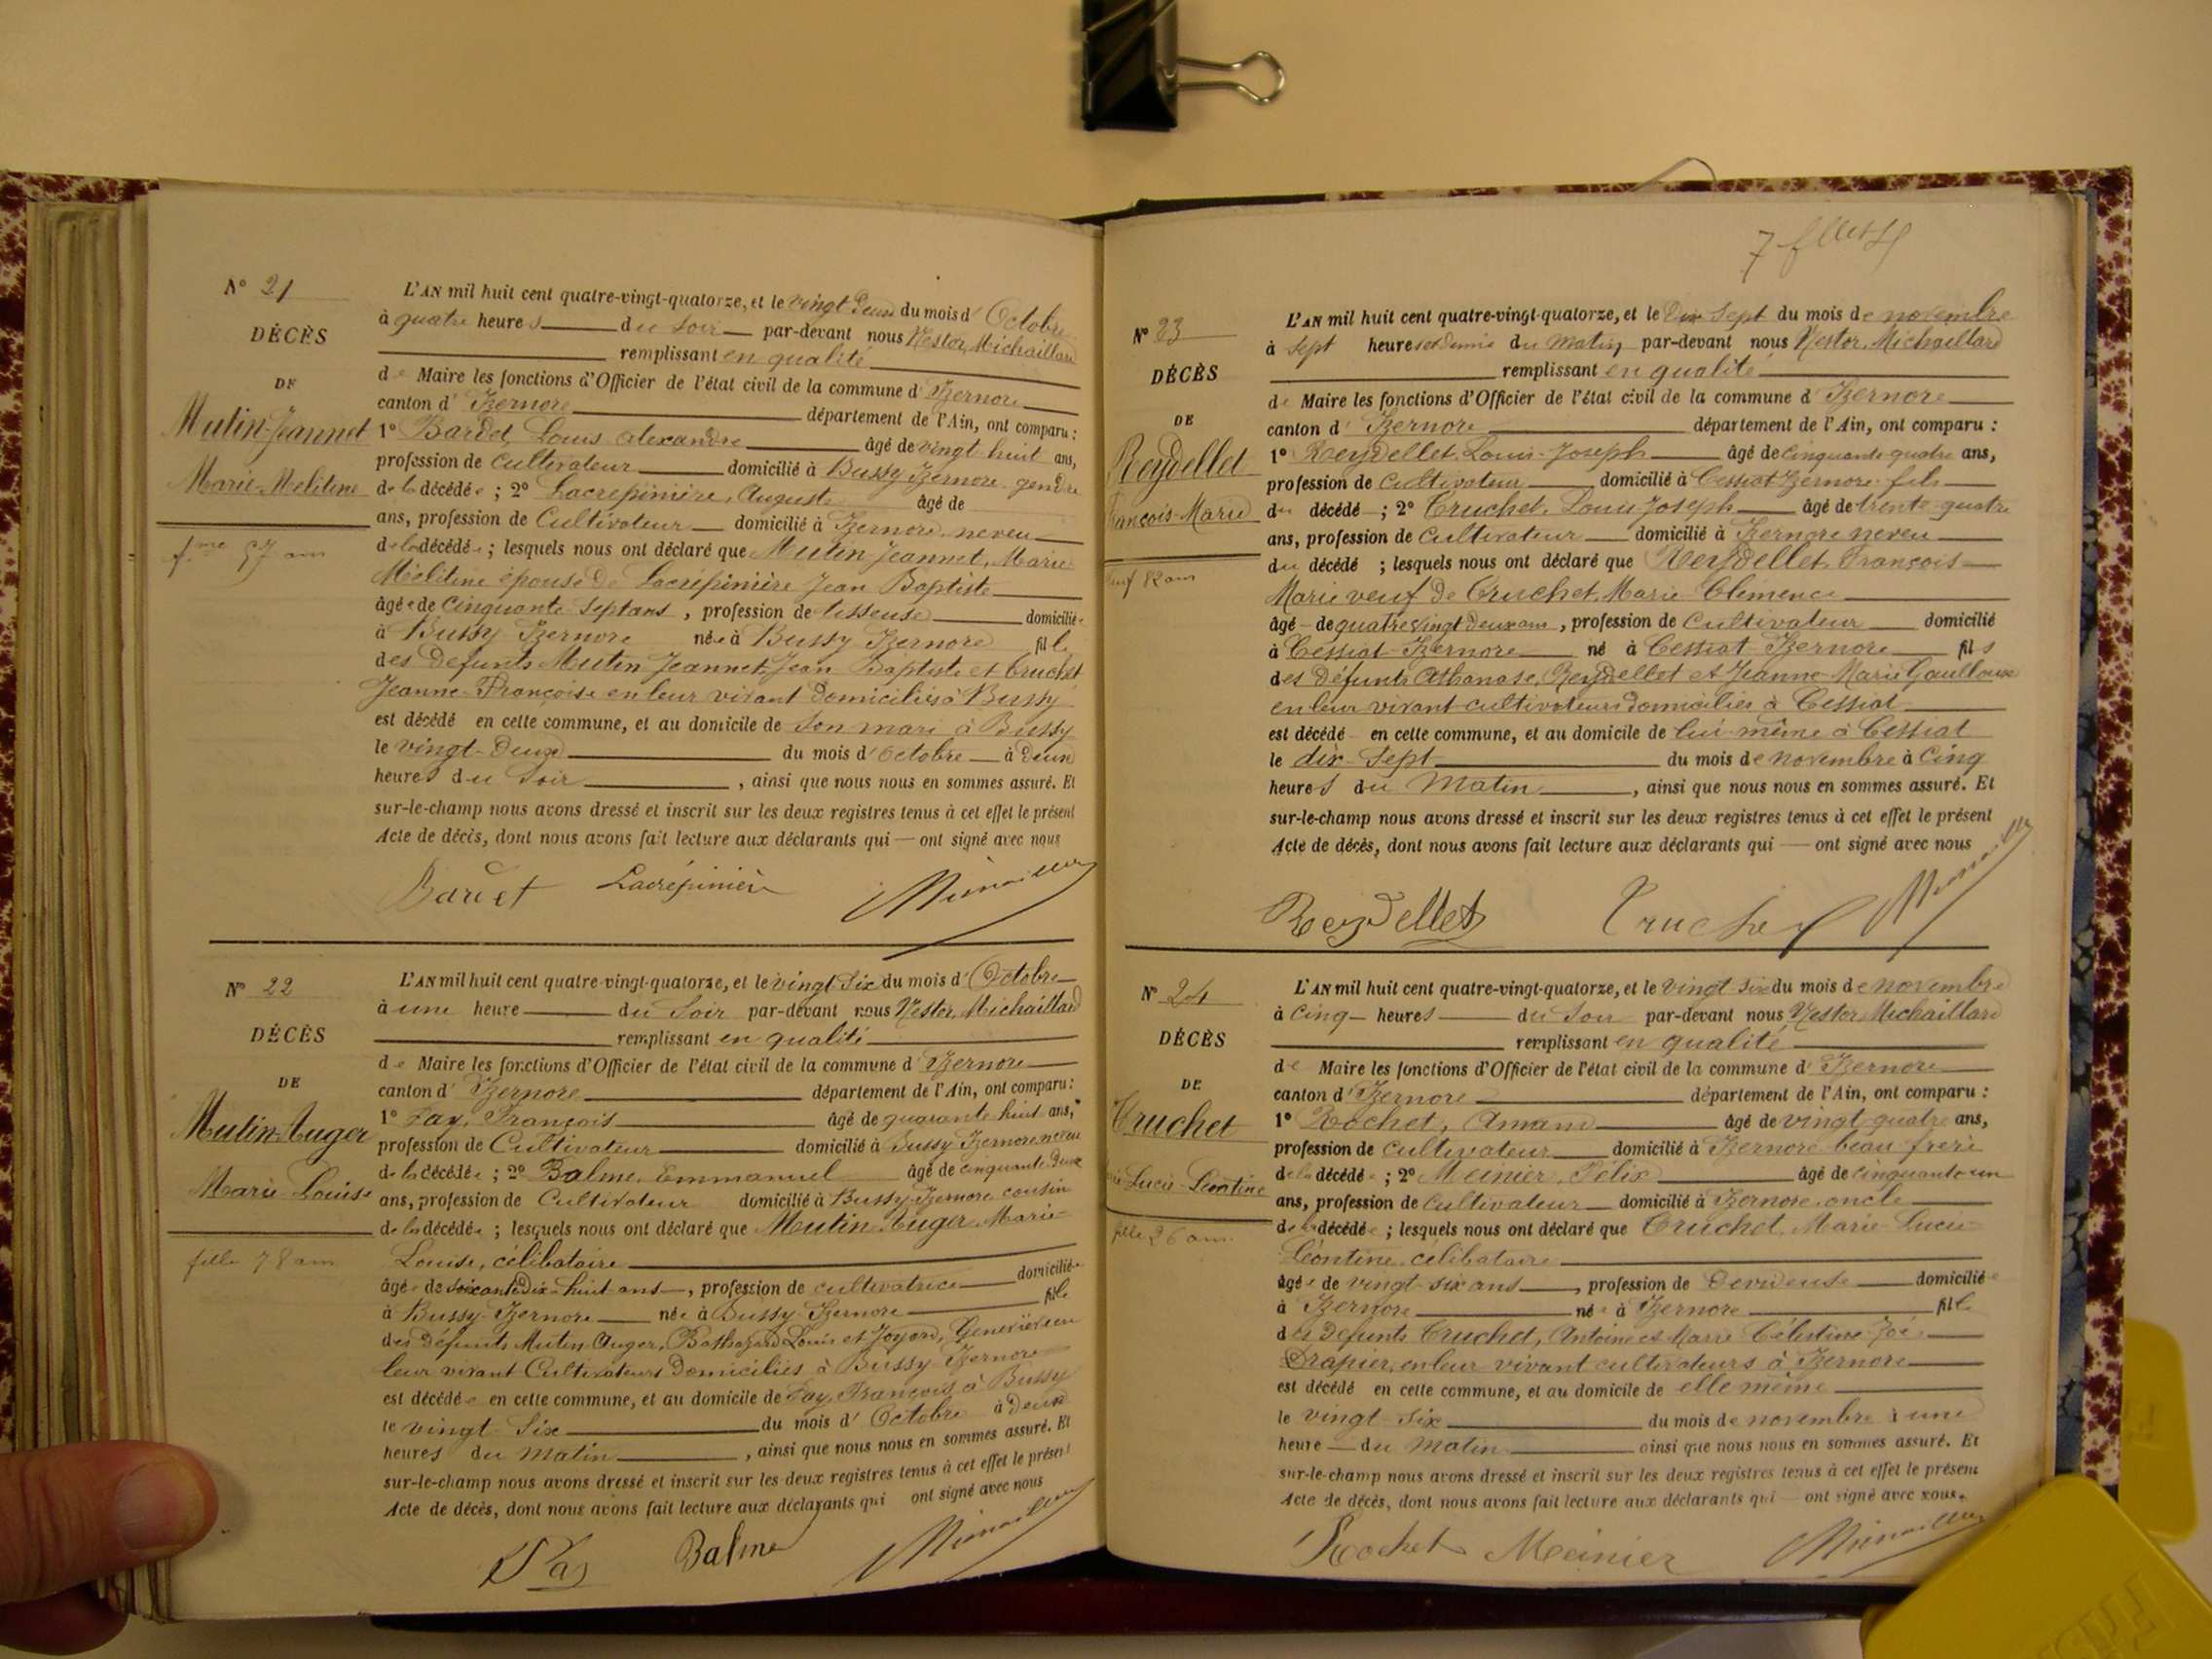 N° 21
DÉCÈS
DE
Mutin-Jeannet
Marie-Mélitine
fme 57 ans
L'AN mil huit cent quatre-vingt-quatorze, et le vingt deux du mois d'Octobre
à quatre heures du Soir par-devant nous Nestor Michaillard
remplissant en qualité
de Maire les fonctions d'Officier de l'état civil de la commune d'Izernore
canton d'Izernore département de l'Ain, ont comparu :
1° Bardet Louis Alexandre âgé de vingt huit ans,
profession de Cultivateur domicilié à Bussy Izernore gendre
de la décédée ; 2° Lacrépinière, Auguste âgé de
ans, profession de Cultivateur domicilié à Izernore neveu
de la décédée ; lesquels nous ont déclaré que Mutin Jeannet, Marie
Mélitine épouse de Lacrépinière Jean Baptiste
âgée de Cinquante Sept ans, profession de tisseuse domiciliée
à Bussy Izernore née à Bussy Izernore fille
des Défunts Mutin Jeannet Jean Baptiste et Truchet
Jeanne Françoise en leur vivant domiciliés à Bussy
est décédé en cette commune, et au domicile de Son mari à Bussy
le vingt-Deux du mois d'Octobre à Deux
heures du Soir, ainsi que nous nous en sommes assuré. Et
sur-le-champ nous avons dressé et inscrit sur les deux registres tenus à cet effet le présent
Acte de décès, dont nous avons fait lecture aux déclarants qui — ont signé avec nous
Bardet Lacrépinière
N° 22
DÉCÈS
DE
Mutin-Auger
Marie Louise
fille 78 ans
L'AN mil huit cent quatre-vingt-quatorze, et le vingt Six du mois d'Octobre
à une heure du Soir par-devant nous Nestor Michaillard
remplissant en qualité
de Maire les fonctions d'Officier de l'état civil de la commune d'Izernore
canton d'Izernore département de l'Ain, ont comparu :
1° Fay, François âgé de quarante huit ans,
profession de Cultivateur domicilié à Bussy Izernore neveu
de la décédée ; 2° Balme, Emmanuel âgé de cinquante deux
ans, profession de Cultivateur domicilié à Bussy-Izernore cousin
de la décédée ; lesquels nous ont déclaré que Mutin Auger Marie-
Louise, célibataire
âgée de soixante Dix-huit ans, profession de cultivatrice domiciliée
à Bussy-Izernore née à Bussy Izernore fille
des Défunts Mutin Auger, Balthazard Louis et Joyard, Geneviève en
leur vivant Cultivateurs Domiciliés à Bussy Izernore
est décédée en cette commune, et au domicile de Fay, François à Bussy
le vingt Six du mois d'Octobre à Deux
heures du Matin, ainsi que nous nous en sommes assuré. Et
sur-le-champ nous avons dressé et inscrit sur les deux registres tenus à cet effet le présent
Acte de décès, dont nous avons fait lecture aux déclarants qui ont signé avec nous
Balme
N° 23
DÉCÈS
DE
Reydellet
François-Marie
veuf 82 ans
L'AN mil huit cent quatre-vingt-quatorze, et le Dix Sept du mois de novembre
à Sept heures et demie du Matin par-devant nous Nestor Michaillard
remplissant en qualité
de Maire les fonctions d'Officier de l'état civil de la commune d'Izernore
canton d'Izernore département de l'Ain, ont comparu :
1° Reydellet Louis-Joseph âgé de cinquante quatre ans,
profession de Cultivateur domicilié à Cessiat Izernore fils
du décédé ; 2° Truchet, Louis Joseph âgé de trente quatre
ans, profession de Cultivateur domicilié à Izernore neveu
du décédé ; lesquels nous ont déclaré que Reydellet François
Marie veuf de Truchet, Marie Clémence
âgé de quatre vingt deux ans, profession de Cultivateur domicilié
à Cessiat Izernore né à Cessiat Izernore fils
des Défunts Athanase, Reydellet et Jeanne-Marie
en leur vivant cultivateurs domiciliés à Cessiat
est décédé en cette commune, et au domicile de lui-même à Cessiat
le dix-Sept du mois de novembre à Cinq
heures du Matin, ainsi que nous nous en sommes assuré. Et
sur-le-champ nous avons dressé et inscrit sur les deux registres tenus à cet effet le présent
Acte de décès, dont nous avons fait lecture aux déclarants qui — ont signé avec nous
Reydellet Truchet
N° 24
DÉCÈS
DE
Truchet
Lucie-Léontine
fille 26 ans
L'AN mil huit cent quatre-vingt-quatorze, et le vingt six du mois de novembre
à Cinq heures du Soir par-devant nous Nestor Michaillard
remplissant en qualité
de Maire les fonctions d'Officier de l'état civil de la commune d'Izernore
canton d'Izernore département de l'Ain, ont comparu :
1° Rochet, Amand âgé de vingt quatre ans,
profession de Cultivateur domicilié à Izernore beau-frère
de la décédée ; 2° Meinier, Félix âgé de cinquante un
ans, profession de Cultivateur domicilié à Izernore oncle
de la décédée ; lesquels nous ont déclaré que Truchet, Marie Lucie
Léontine, célibataire
âgée de vingt six ans, profession de Dévideuse domiciliée
à Izernore née à Izernore fille
des Défunts Truchet, Antoine et Marie Célestine Zoé
Drapier, en leur vivant cultivateurs à Izernore
est décédé en cette commune, et au domicile de elle même
le vingt six du mois de novembre à une
heure du Matin ainsi que nous nous en sommes assuré. Et
sur-le-champ nous avons dressé et inscrit sur les deux registres tenus à cet effet le présent
Acte de décès, dont nous avons fait lecture aux déclarants qui — ont signé avec nous.
Rochet Meinier